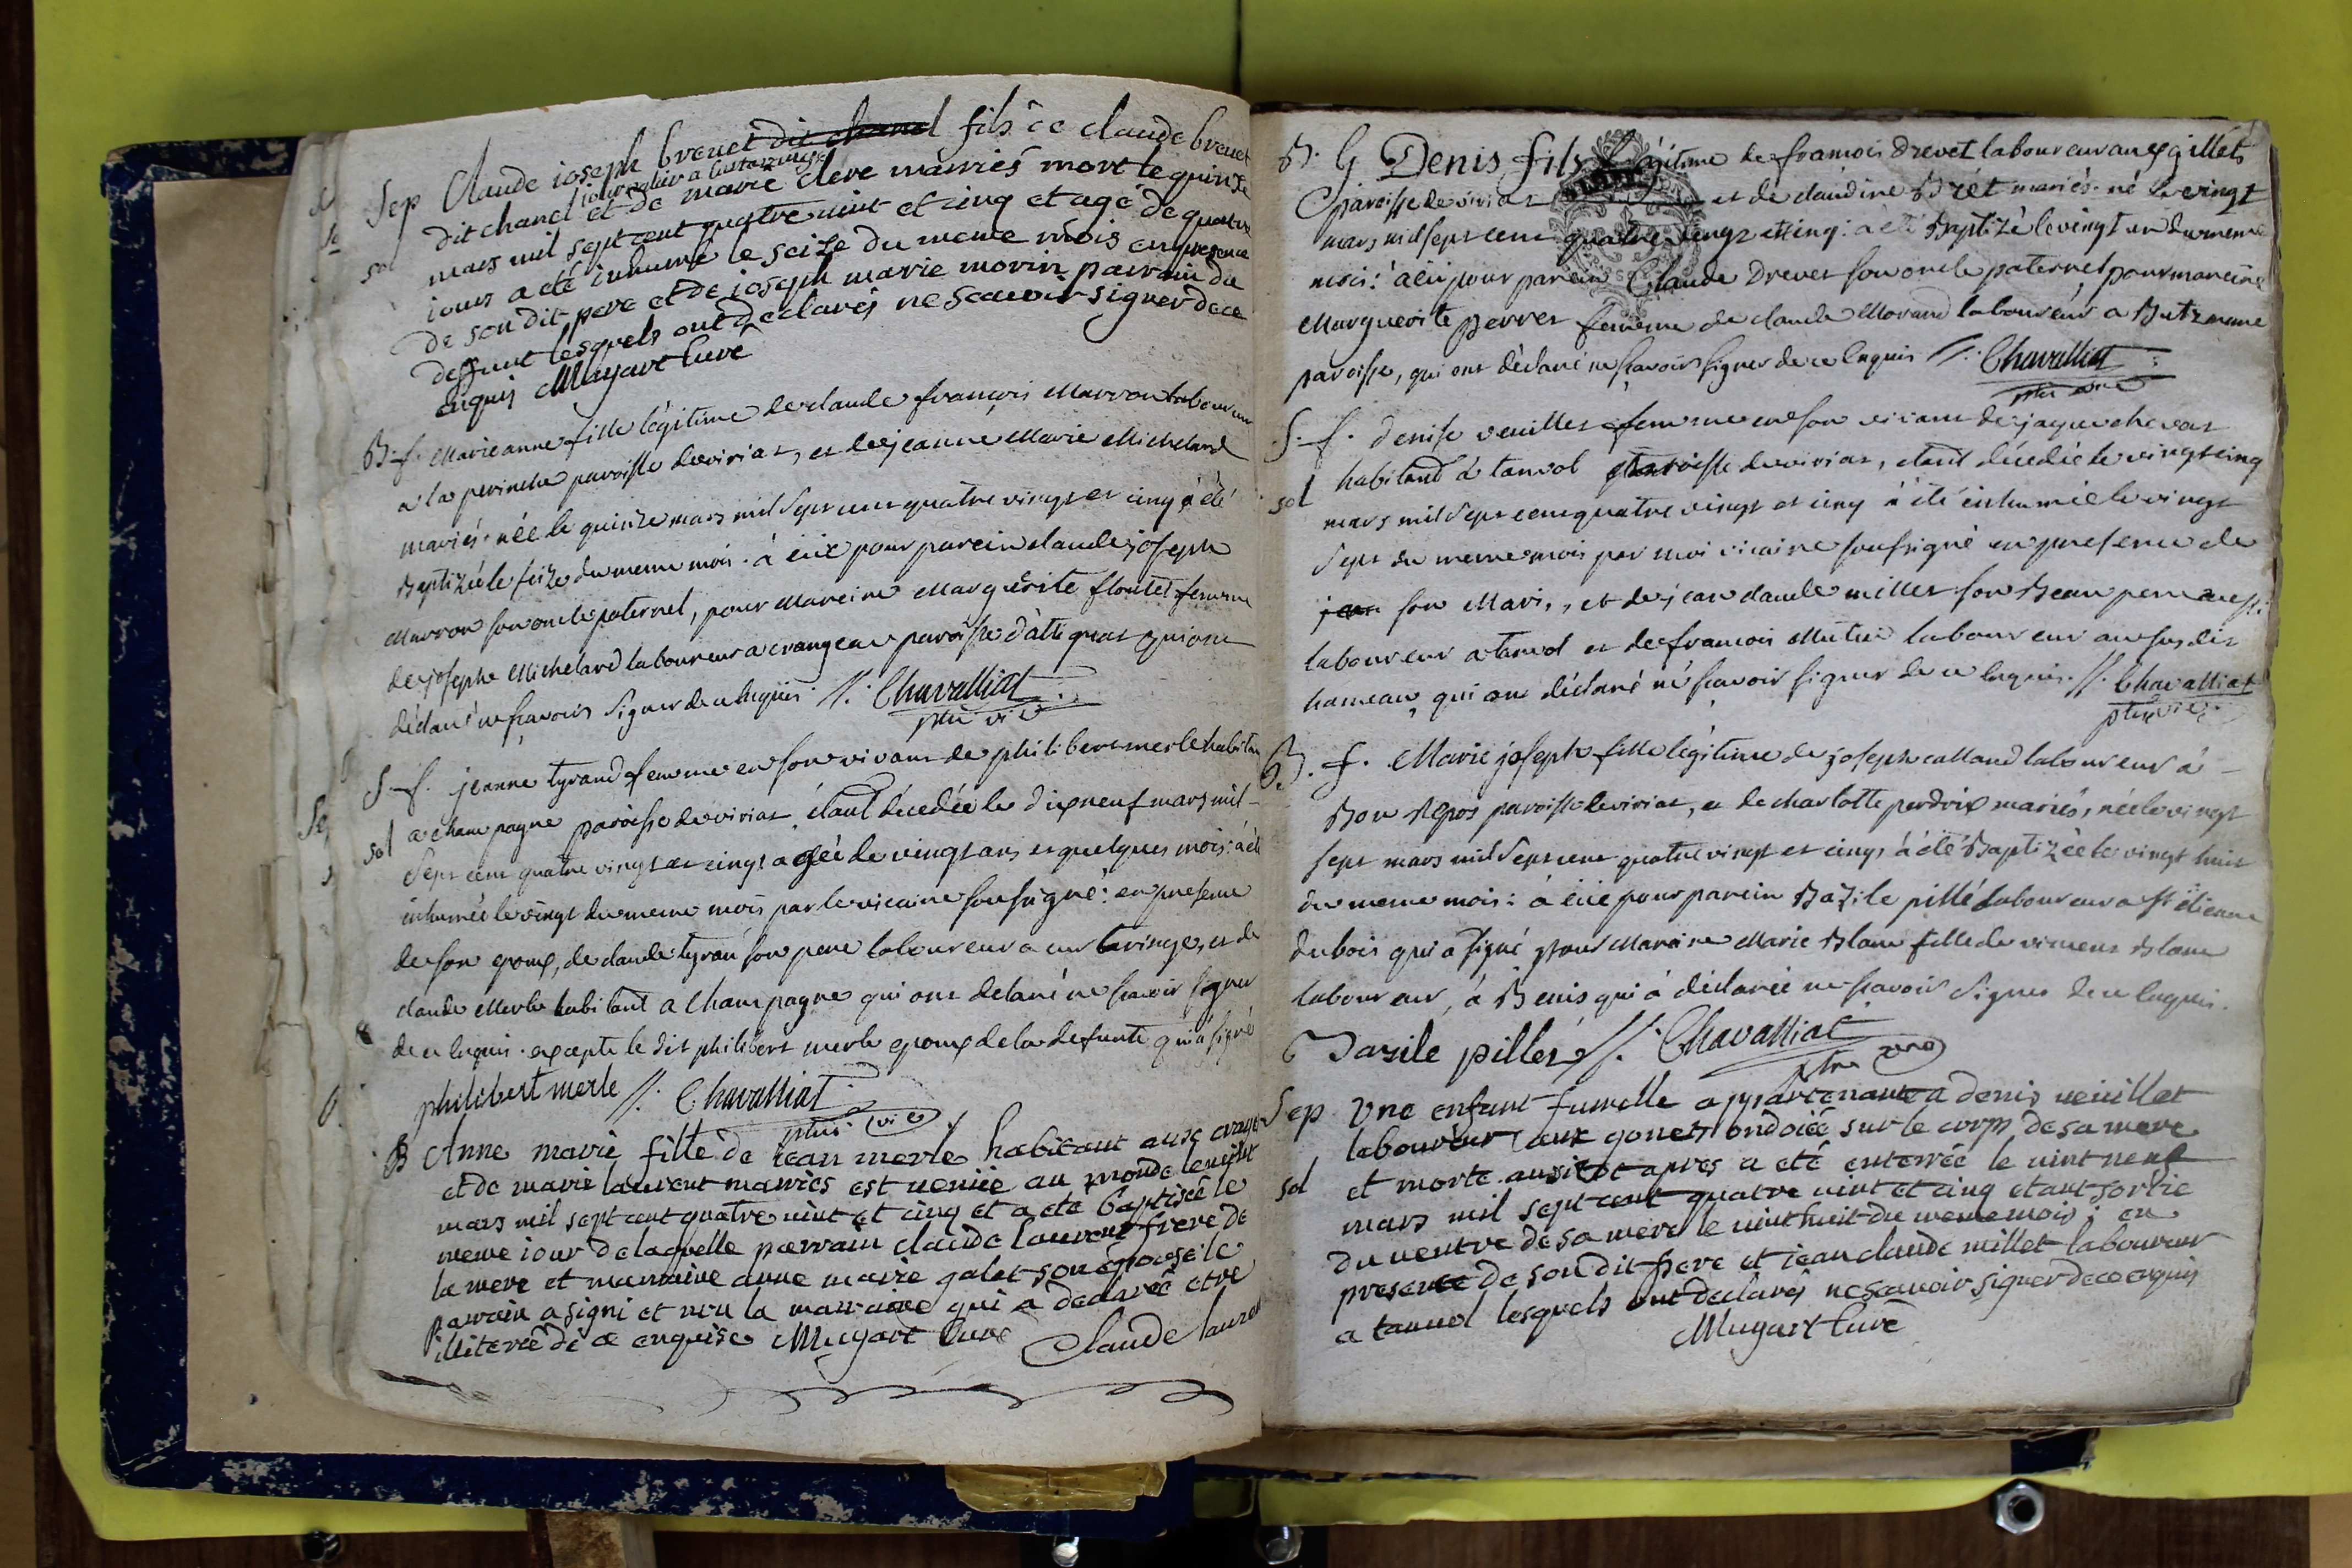 Sep Claude ioseph brevet dit chanel fils de claude brevet
dit chanel et de marie clere marriés mort le quinze
mars mil sept cent quatre vint et cinq et agé de quatre
sol iours a eté inhumé le seize du meme mois en presence
de son dit pere et de ioseph marie morin parrain du
deffunt lesquels ont declarés ne scavoir signer de ce
enquis Mugart Curé
B. f. Marie anne fille légitime de claude françois Marron laboureur
a la perinche paroisse de viriat, et de jeanne Marie Michelard
mariés. née le quinze mars mil sept cent quatre vingt et cinq à été
Baptizée le seize du meme mois. à eüe pour parein claude joseph
Marron son oncle paternel, pour Mareine Marguerite floutet femme
de joseph Michelard laboureur a crangeac paroisse d'attignat qui ont
déclaré ne sçavoir signer de ce enquis //. Chavalliat
ptre vic
S. f. jeanne tyrand femme en son vivant de philibert merle habitan
sol a champagne paroisse de viriat étant décedée le dix neuf mars mil
Sept cent quatre vingt et cinq agée de vingt ans et quelques mois: à été
inhumée le vingt du meme mois par le vicaire sousigné: en presence
de son epoux, de claude tyran son pere laboureur a et de
claude Merle habitant a Champagne qui ont declaré ne scavoir signer
de ce enquis. excepte le dit philibert merle epoux de la defunte qui a signé
philibert merle //. Chavalliat
ptre vic
B Anne marie fille de iean merle habitant aux
et de marie laurent marriés est venüe au monde le vint
mars mil sept cent quatre vint et cinq et a eté baptisée le
meme iour de laquelle parrain claude laurent frere de
la mere et marraine anne marie galet son épouse le
parrain a signé et non la marraine qui a declaré etre
illiterée de ce enquise Mugart Curé Claude lauren
B. G Denis fils Légitime de francois Drevet laboureur aux gillets
paroisse de viriat et de claudine Brét mariés. né le vingt
mars mil sept cent quatre vingt et cinq: à été Baptizé le vingt un du meme
mois: à eu pour parein Claude Drevet son oncle paternel, pour mareine
Marguerite perret femme de claude Morand laboureur a meme
paroisse, qui ont déclaré ne sçavoir signer de ce enquis //. Chavalliat
ptre vic
S. f. denise veuillet femme en son vivant de jaque chevat
habitant à tanvol paroisse de viriat, étant décedée le vingt cinq
sol mars mil sept cent quatre vingt et cinq à été inhumée le vingt
Sept du meme mois par moi vicaire sousigné en presence de
jean son Mari, et de jean claude millet son Beau pere aussi
laboureur a tanvol et de francois laboureur au susdit
hameau, qui ont déclaré ne sçavoir signer de ce enquis. //. Chavalliat
ptre vic
B. f. Marie joseph fille légitime de joseph calland laboureur à
Bon Repos paroisse de viriat, et de charlotte perdrix mariés, née le vingt
sept mars mil sept cent quatre vingt et cinq, à été Baptizée le vingt huit
du meme mois: à eüe pour parein Bazile pillé laboureur a st étienne
du bois qui a signé pour Mareine Marie Blanc fille de vincent Blanc
laboureur, à Benis qui à déclarée ne sçavoir signer de ce enquis.
Basile pillet //. Chavalliat
ptre vic
Sep Une enfant fumelle appartenante a denis veuillet
laboureur aux gonets ondoiée sur le corps de sa mere
sol et morte ausitot apres a eté enterrée le vint neuf
mars mil sept cent quatre vint et cinq etant sortie
du ventre de sa mere le vint huit du meme mois; en
presence de son dit pere et iean claude millet laboureur
a tanvol lesquels ont declarés ne scavoir signer de ce enquis
Mugart Curé